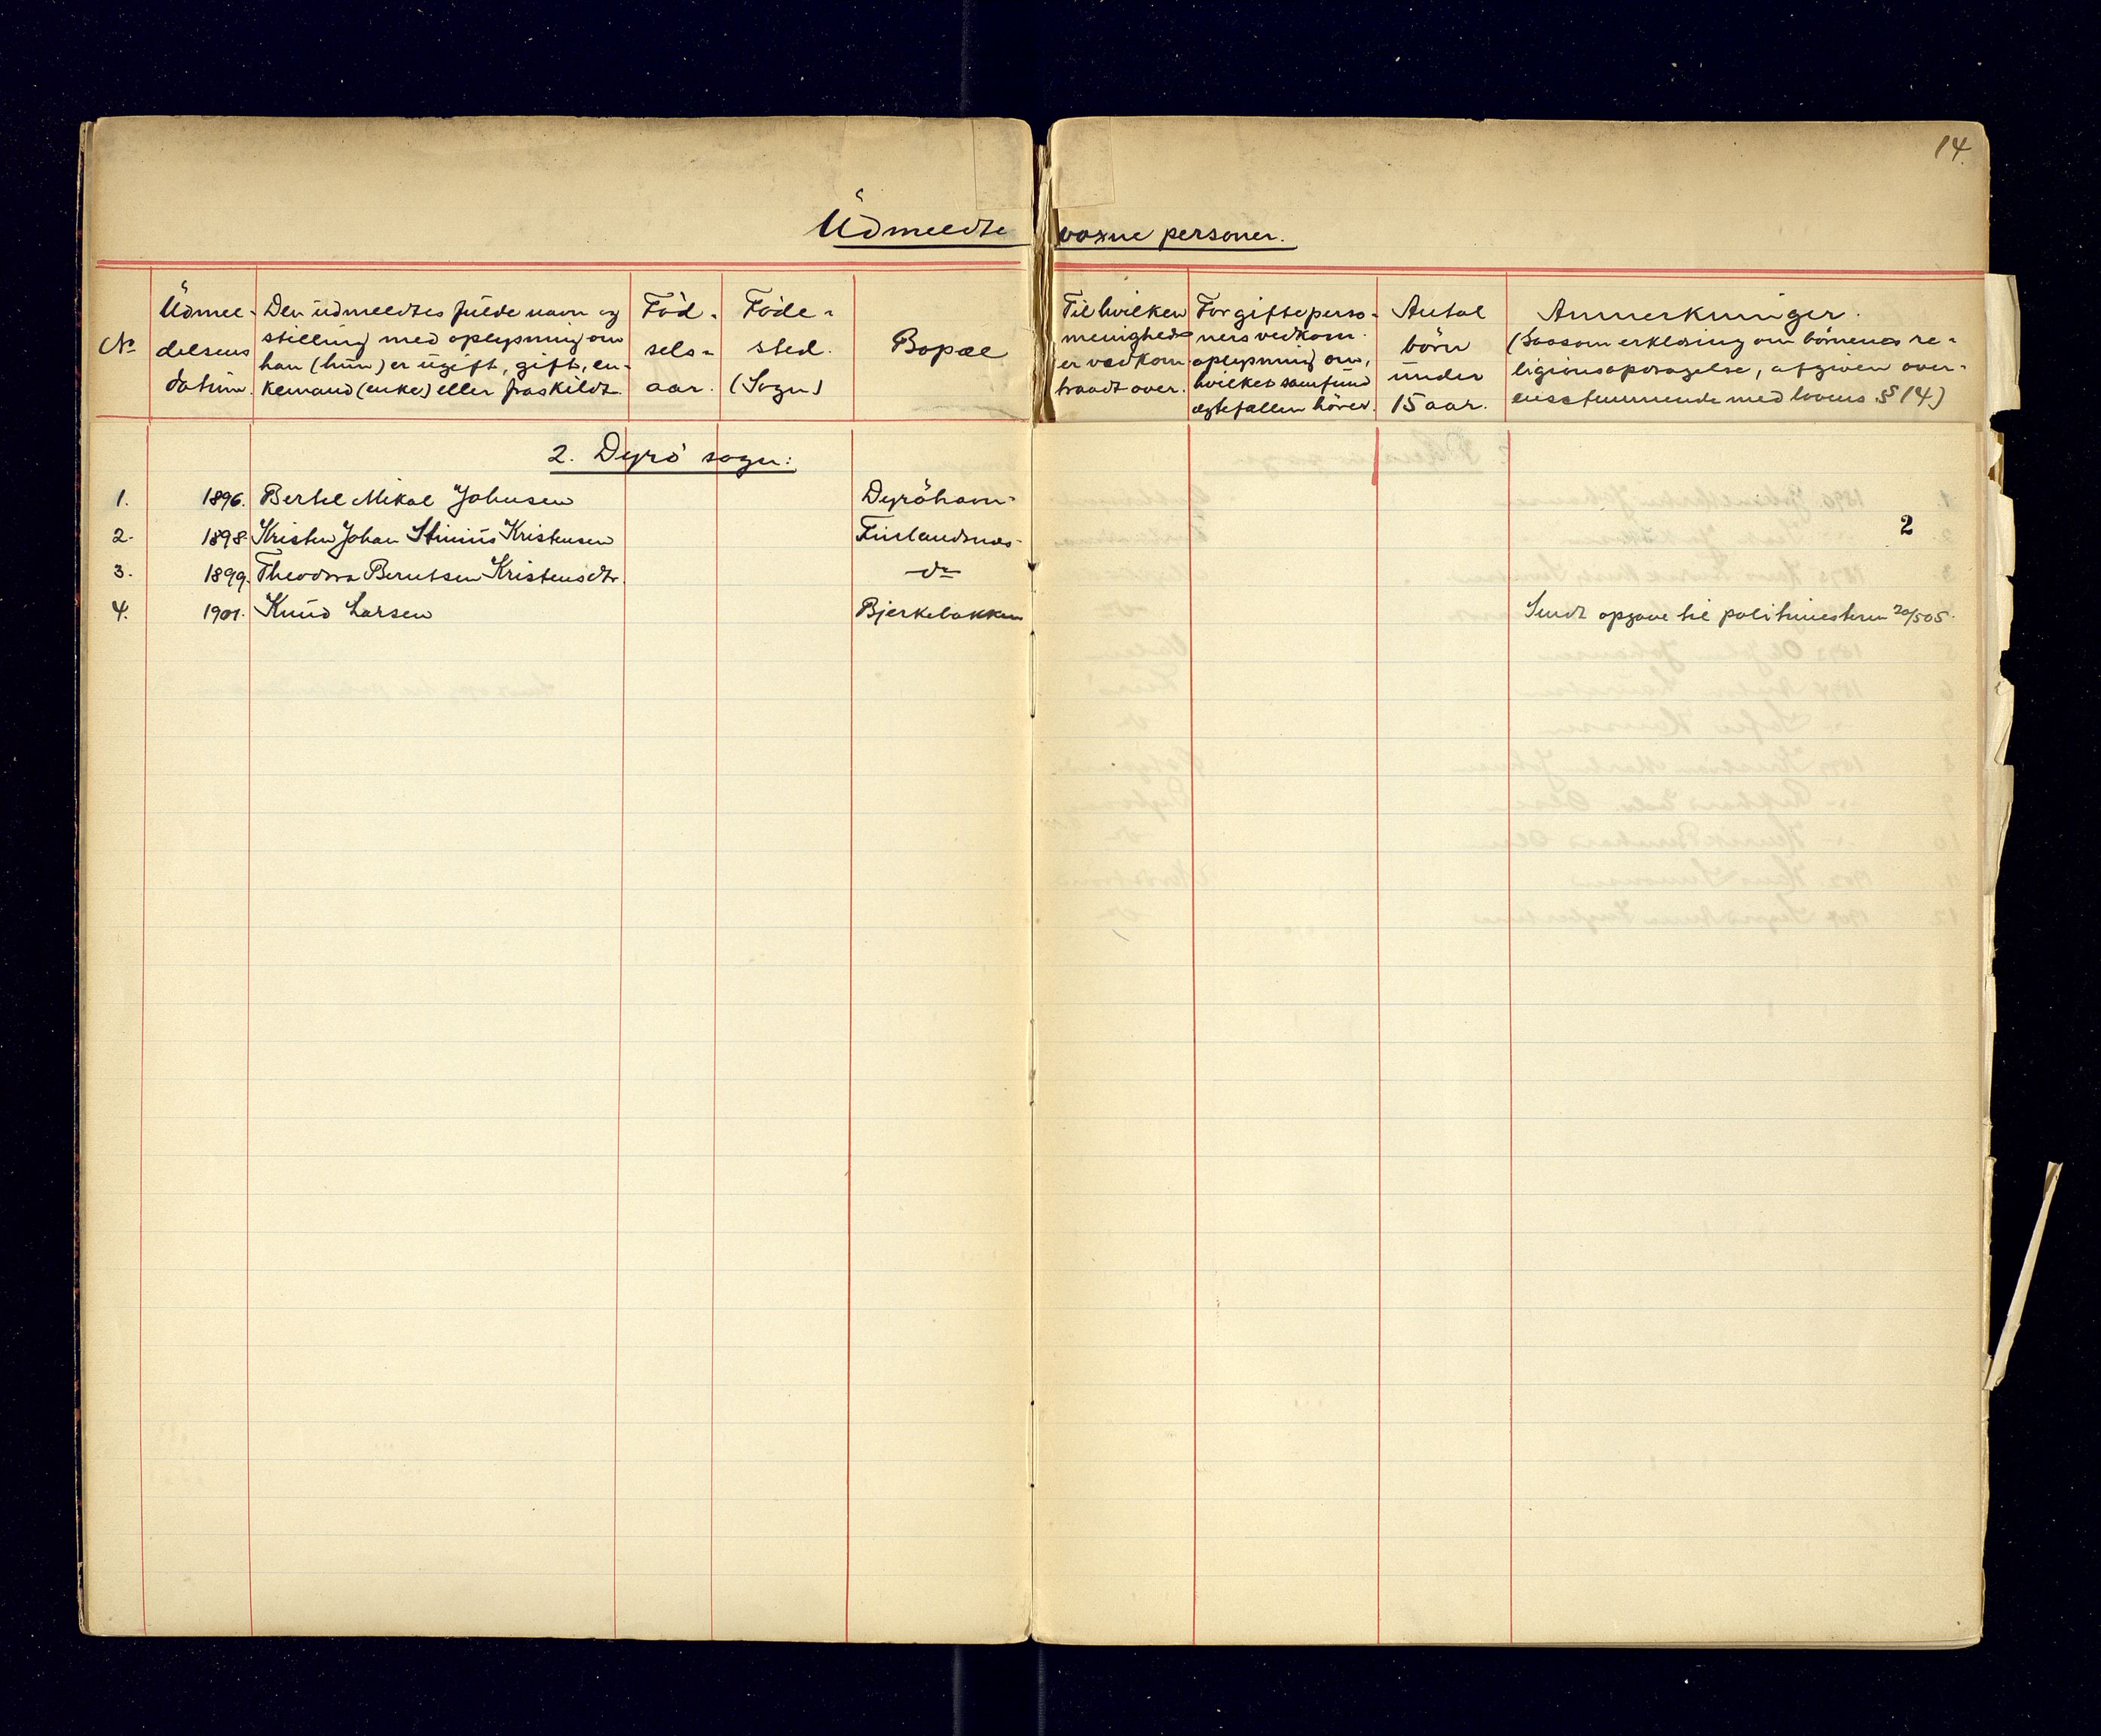 14.
Udmeldte voxne personer.
No
Udmel-
delsens
datum.
Den udmeldtes fulde navn og
stilling med oplysning om
han (hun) er ugift, gift, en-
kemand (enke) eller fraskildt.
Fød-
sels-
aar.
Føde-
sted.
(Sogn)
Bopæl
Til hvilken
menighed
er vedkom
traadt over.
For gifte perso-
ners vedkom.
oplysning om,
hvilket samfund
ægtefællen hører.
Antal
børn
under
15 aar.
Anmerkninger.
(Saasom erklæring om børnenes re-
ligionsopdragelse, afgiven over-
ensstemmende med lovens § 14)
2. Dyrø sogn:
1. 1896. Bertel Mikal Johnsen Dyröhavn-
2. 1898 Kristen Johan Stinius Kristensen Finlandsnæs-
2
3. 1899. Theodora Berntsen Kristensdtr. do
4. 1901. Knud Larsen Bjerkebakken Sendt opgave til politimesteren 20/5 05.